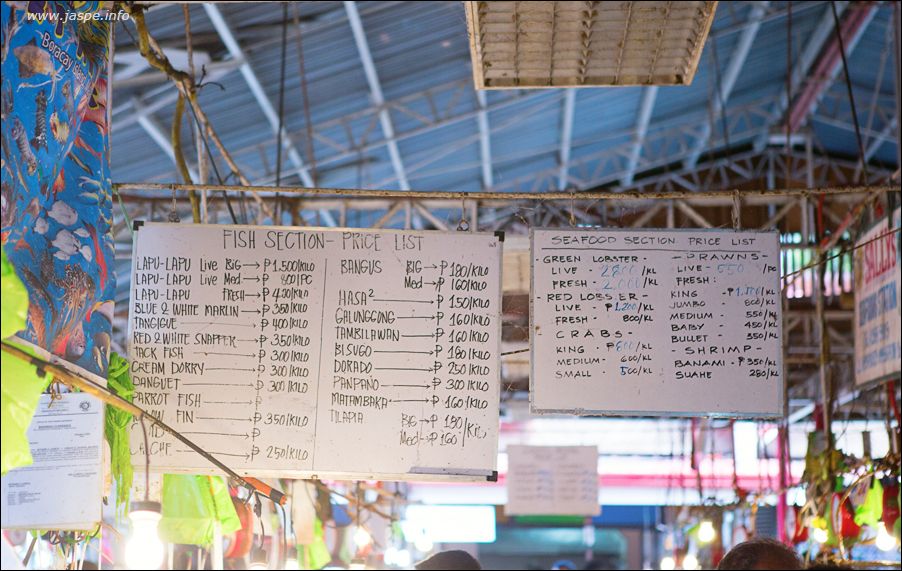 www.jaspe.info
Boracay Island
FISH SECTION - PRICE LIST
LAPU-LAPU Live BIG → ₱ 1.500/KILO
LAPU-LAPU Live Med → ₱ 900/PC
LAPU-LAPU Fresh → ₱ 400/KILO
BLUE & WHITE MARLIN → ₱ 350/KILO
TANGIGUE → ₱ 400/KILO
RED & WHITE SNAPPER → ₱ 350/KILO
JACK FISH → ₱ 300/KILO
CREAM DORRY → ₱ 300/KILO
DANGUET → ₱ 300/KILO
PARROT FISH → ₱
FIN ₱ 350/KILO
→ ₱
₱ 250/KILO
BANGUS BIG → ₱ 180/KILO
Med → ₱ 160/KILO
HASA² → ₱ 150/KILO
GALUNGGONG → ₱ 160/KILO
TAMBILAWAN → ₱ 160/KILO
BISUGO → ₱ 180/KILO
DORADO → ₱ 250/KILO
PANPANO → ₱ 300/KILO
MATAMBAKA → ₱ 160/KILO
TILAPIA BIG → ₱ 150/Kil
Med → ₱ 160
SEAFOOD SECTION PRICE LIST
GREEN LOBSTER -
LIVE - /KL
FRESH - ₱ 2,000/KL
- RED LOBSER -
LIVE - ₱ 1,200/KL
FRESH - 800/KL
- CRABS -
KING - ₱ 800/KL
MEDIUM - 600/KL
SMALL - 500/KL
- PRAWNS -
LIVE - 550/PC
FRESH:
KING - /KL
JUMBO - 600/KL
MEDIUM - 550/KL
BABY - 450/KL
BULLET - 350/KL
- SHRIMP -
BANAMI - ₱ 350/KL
SUAHE 280/KL